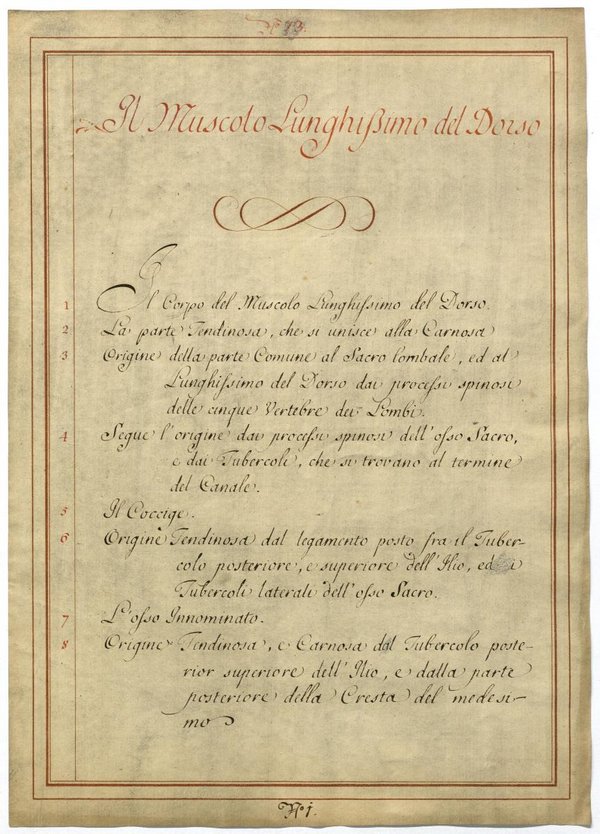 Nº 73.
Il Muscolo Lunghissimo del Dorso
1 Il Corpo del Muscolo Lunghissimo del Dorso.
2 La parte Tendinosa, che si unisce alla Carnosa
3 Origine della parte Comune al Sacro lombale, ed al
Lunghissimo del Dorso dai processi spinosi
delle cinque Vertebre dei Lombi.
4 Segue l'origine dai processi spinosi dell'osso Sacro,
e dai Tubercoli, che si trovano al termine
del Canale.
5 Il Coccige.
6 Origine Tendinosa dal legamento posto fra il Tuber-
colo posteriore, e superiore dell'Ilio, ed
Tubercoli laterali dell'osso Sacro.
7 L'osso Innominato.
8 Origine Tendinosa, e Carnosa dal Tubercolo poste-
rior superiore dell'Ilio, e dalla parte
posteriore della Cresta del medesi-
mo
Nº 1.